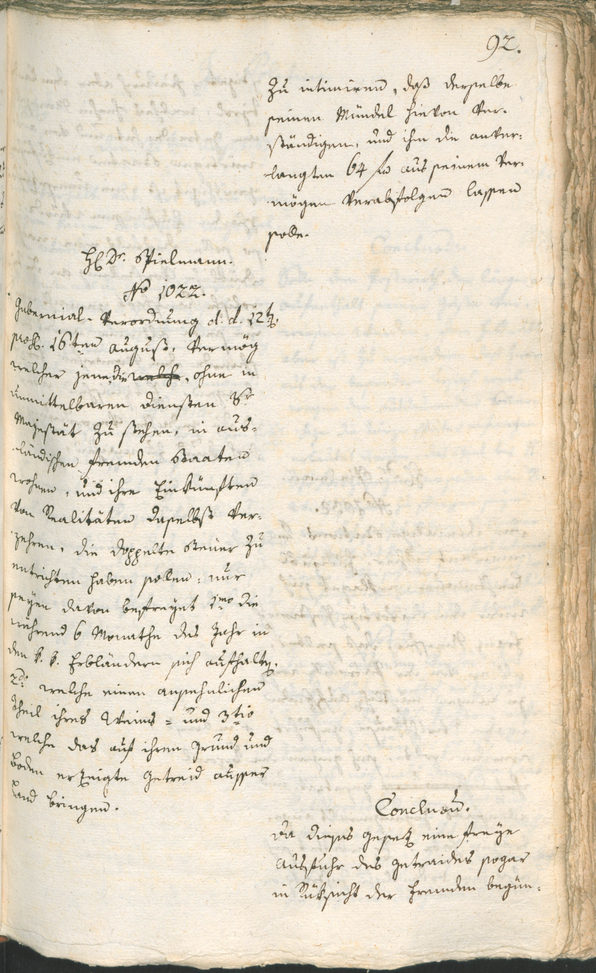 92.
zu intimiren, daß derselbe
seinen Mündel hievon ver-
ständigen, und ihm die anver-
langten 64 fr aus seinem Ver-
mögen verabfolgen lassen
solle.
H. Dr. Spielmann.
No 1022.
Gubernial-Verordnung d. d. 12t
prs. 16ten August, vermög
welcher jene, die welche, ohne in
unmittelbaren Diensten Sr
Majestät zu stehen, in aus-
ländischen fremden Staaten
wohnen, und ihre Einkünften
von Realitäten daselbst ver-
zehren, die doppelte Steuer zu
entrichten haben sollen: nur
seyen davon befreyet 1mo die
während 6 Monathe des Jahr in
den k. k. Erbländern sich aufhalten.
2do welche einen ansehnlichen
Theil ihres Weins = und 3tio
welche das auf ihren Grund und
Boden erzeigte Getreid ausser
Land bringen.
Conclusum.
Da dieses Gesetz eine freye
Ausfuhr des Getraides sogar
in Rücksicht der Fremden begün-